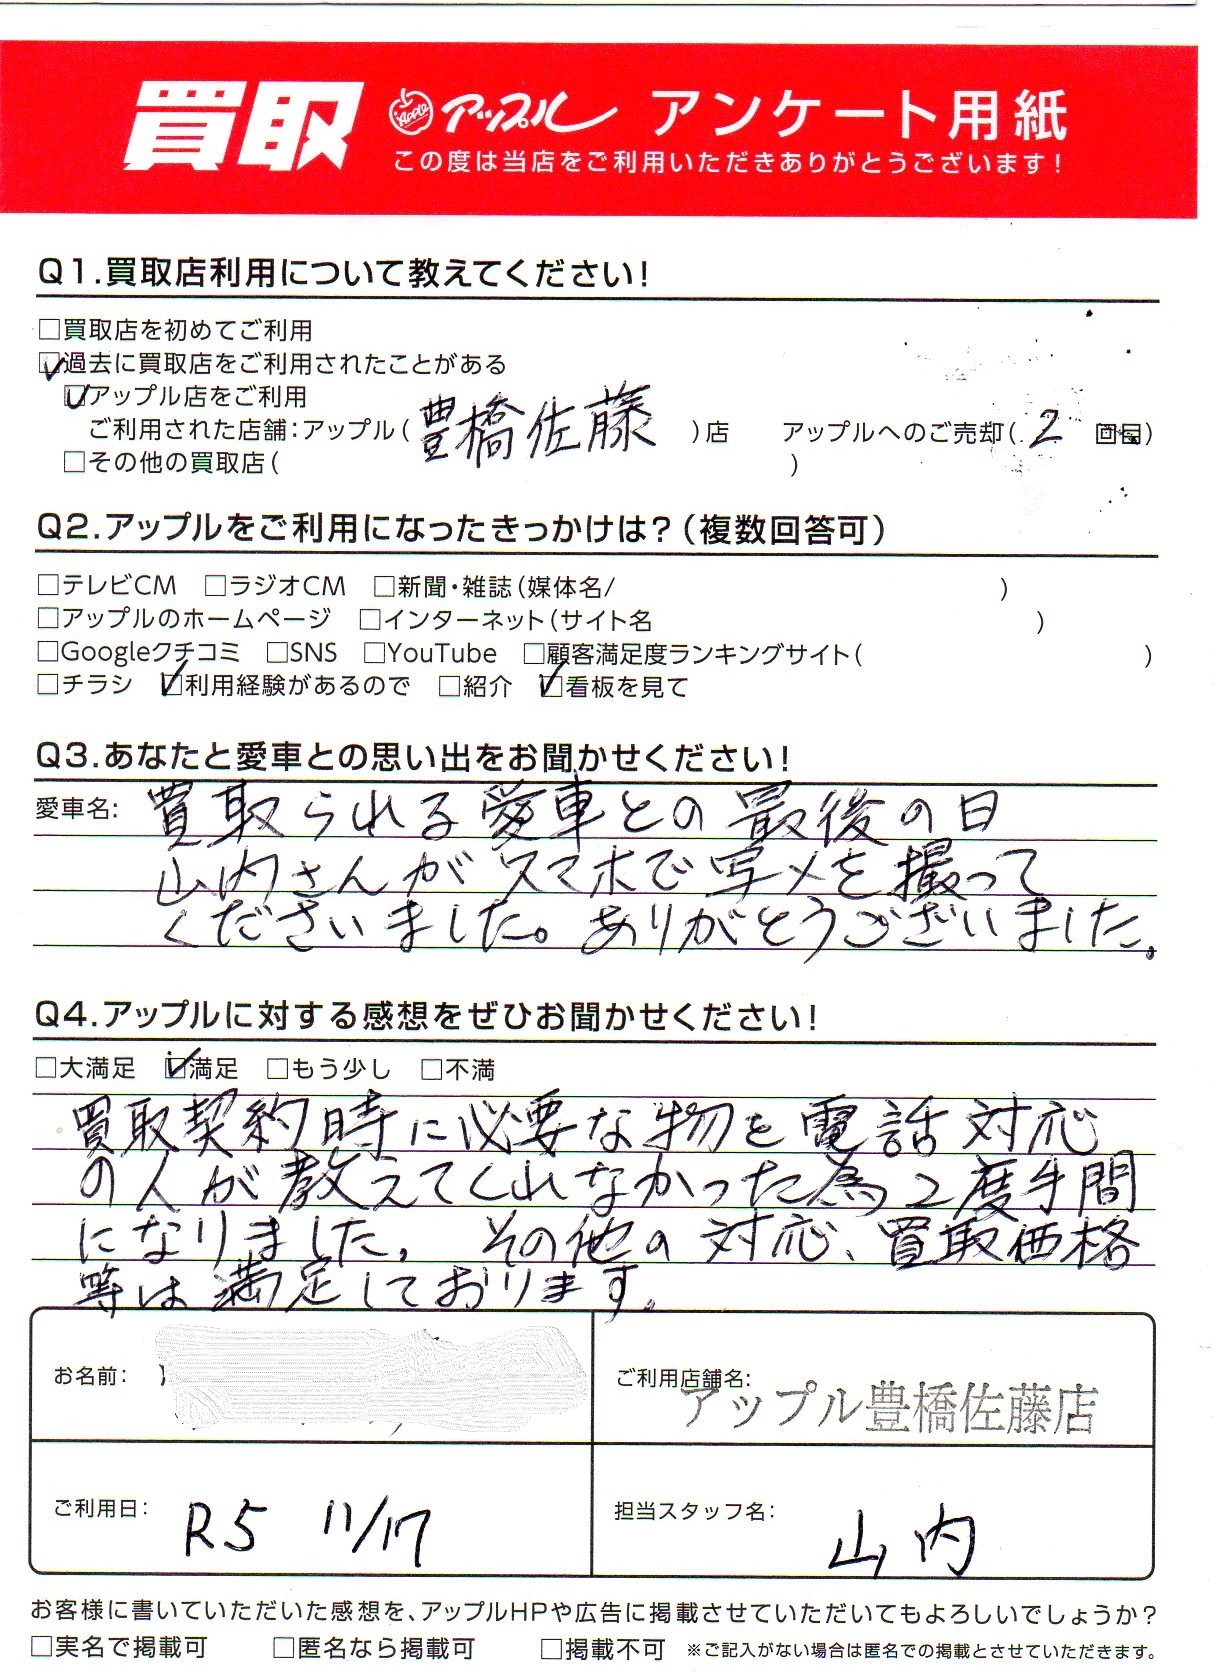 買取 Apple アップル アンケート用紙
この度は当店をご利用いただきありがとうございます!
Q1.買取店利用について教えてください!
□買取店を初めてご利用
☑過去に買取店をご利用されたことがある
☑アップル店をご利用
ご利用された店舗:アップル(豊橋佐藤)店 アップルへのご売却(2回目)
□その他の買取店( )
Q2.アップルをご利用になったきっかけは?(複数回答可)
□テレビCM □ラジオCM □新聞・雑誌(媒体名/ )
□アップルのホームページ □インターネット(サイト名 )
□Googleクチコミ □SNS □YouTube □顧客満足度ランキングサイト( )
□チラシ ☑利用経験があるので □紹介 ☑看板を見て
Q3.あなたと愛車との思い出をお聞かせください!
愛車名: 買取られる愛車との最後の日
山内さんがスマホで写メを撮って
くださいました。ありがとうございました。
Q4.アップルに対する感想をぜひお聞かせください!
□大満足 ☑満足 □もう少し □不満
買取契約時に必要な物を電話対応
の人が教えてくれなかった為2度手間
になりました。その他の対応、買取価格
等は満足しております。
お名前:
ご利用店舗名: アップル豊橋佐藤店
ご利用日: R5 11/17
担当スタッフ名: 山内
お客様に書いていただいた感想を、アップルHPや広告に掲載させていただいてもよろしいでしょうか?
□実名で掲載可 □匿名なら掲載可 □掲載不可 ※ご記入がない場合は匿名での掲載とさせていただきます。